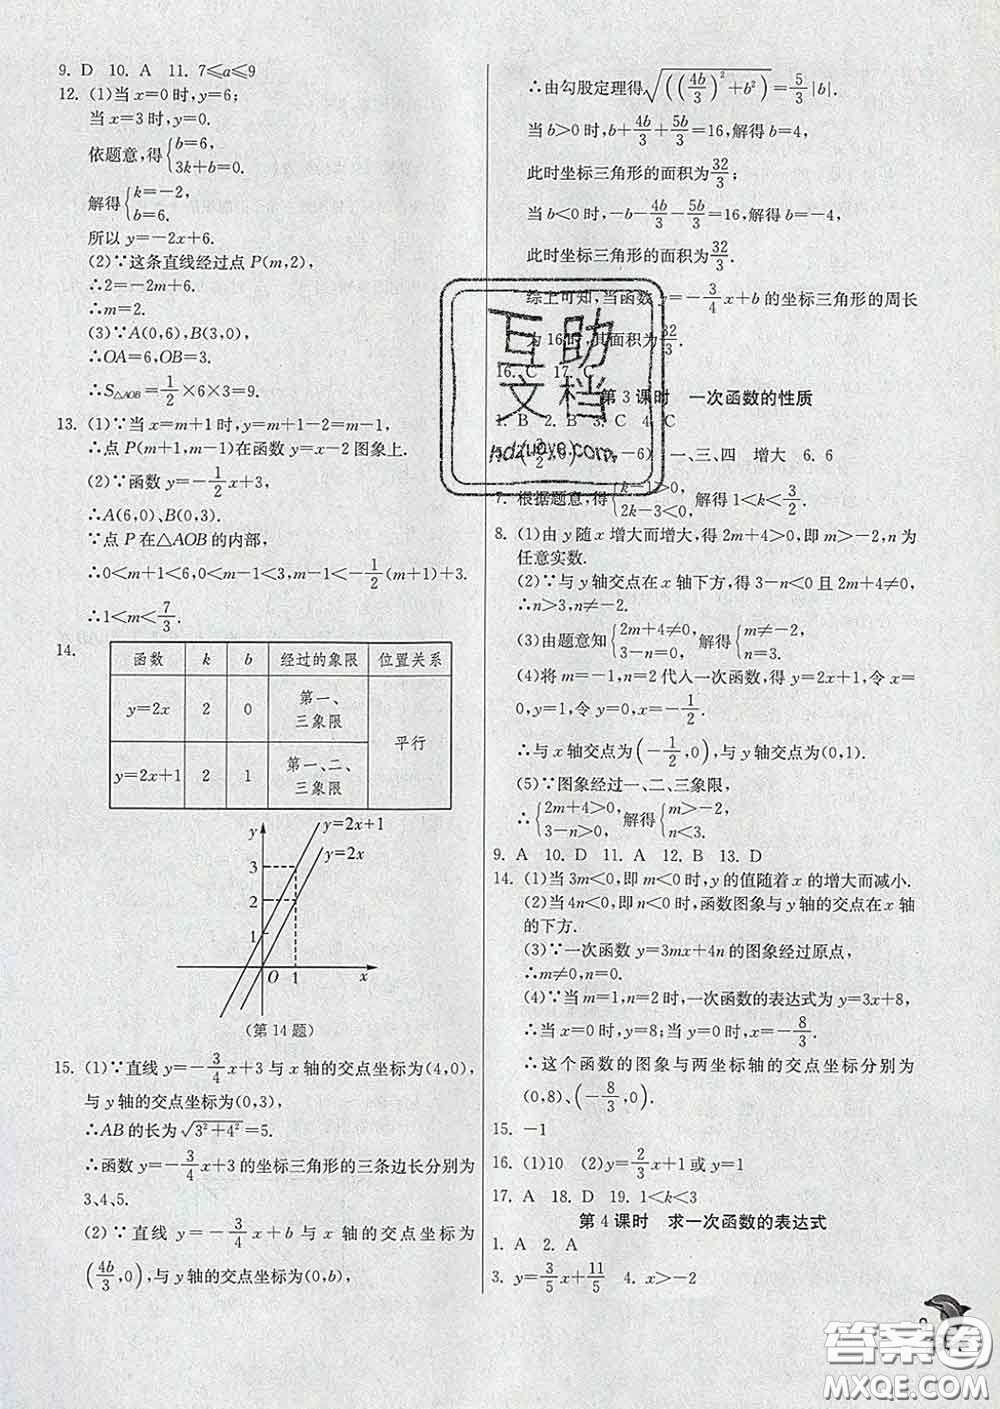 9. D  10. A  11. 7≤a≤9
12. (1)当 x=0 时, y=6;
当 x=3 时, y=0.
依题意,得{b=6, 3k+b=0.
解得{k=-2, b=6.
所以 y=-2x+6.
(2)∵这条直线经过点 P(m,2),
∴2=-2m+6.
∴m=2.
(3)∵A(0,6),B(3,0).
∴OA=6,OB=3.
∴S△AOB=1/2×6×3=9.
13. (1)∵当 x=m+1 时,y=m+1-2=m-1,
∴点 P(m+1,m-1)在函数 y=x-2 图象上.
(2)∵函数 y=-1/2x+3,
∴A(6,0)、B(0,3).
∵点 P 在△AOB 的内部,
∴0<m+1<6,0<m-1<3,m-1<-1/2(m+1)+3.
∴1<m<7/3.
14.
函数 k b 经过的象限 位置关系
y=2x 2 0 第一、三象限 平行
y=2x+1 2 1 第一、二、三象限
y y=2x+1
y=2x
3
2
1
O 1 x
(第 14 题)
15. (1)∵直线 y=-3/4x+3 与 x 轴的交点坐标为(4,0),
与 y 轴的交点坐标为(0,3),
∴AB 的长为√(3²+4²)=5.
∴函数 y=-3/4x+3 的坐标三角形的三条边长分别为
3、4、5.
(2)∵直线 y=-3/4x+b 与 x 轴的交点坐标为
(4b/3,0),与 y 轴的交点坐标为(0,b),
∴由勾股定理得√(((4b/3)²+b²))=5/3|b|.
当 b>0 时,b+4b/3+5b/3=16,解得 b=4,
此时坐标三角形的面积为32/3;
当 b<0 时,-b-4b/3-5b/3=16,解得 b=-4,
此时坐标三角形的面积为32/3.
综上可知,当函数 y=-3/4x+b 的坐标三角形的周长
为 16时,其面积为32/3.
16. C  17. C
第 3 课时 一次函数的性质
1. B  2. B  3. C  4. C
-6) 一、三、四 增大 6. 6
7. 根据题意,得{k-1>0, 2k-3<0, 解得 1<k<3/2.
8. (1)由 y 随 x 增大而增大,得 2m+4>0,即 m>-2,n 为
任意实数.
(2)∵与 y 轴交点在 x 轴下方,得 3-n<0 且 2m+4≠0,
∴n>3,n≠-2.
(3)由题意知{2m+4≠0, 3-n=0. 解得{m≠-2, n=3.
(4)将 m=-1,n=2 代入一次函数,得 y=2x+1,令 x=
0,y=1,令 y=0,x=-1/2.
∴与 x 轴交点为(-1/2,0),与 y 轴交点为(0,1).
(5)∵图象经过一、二、三象限,
∴{2m+4>0, 3-n>0, 解得{m>-2, n<3.
9. A  10. D  11. A  12. B  13. D
14. (1)当 3m<0,即 m<0 时,y 的值随着 x 的增大而减小.
(2)当 4n<0,即 n<0 时,函数图象与 y 轴的交点在 x 轴
的下方.
(3)∵一次函数 y=3mx+4n 的图象经过原点,
∴m≠0,n=0.
(4)∵当 m=1,n=2 时,一次函数的表达式为 y=3x+8,
∴当 x=0 时,y=8;当 y=0 时,x=-8/3.
∴这个函数的图象与两坐标轴的交点分别为
(0,8)、(-8/3,0).
15. -1
16. (1)10  (2)y=2/3x+1 或 y=1
17. A  18. D  19. 1<k<3
第 4 课时 求一次函数的表达式
1. A  2. A
3. y=3/5x+11/5  4. x>-2
互助
文档
hdzuoye.com
答案卷
MXQE.COM